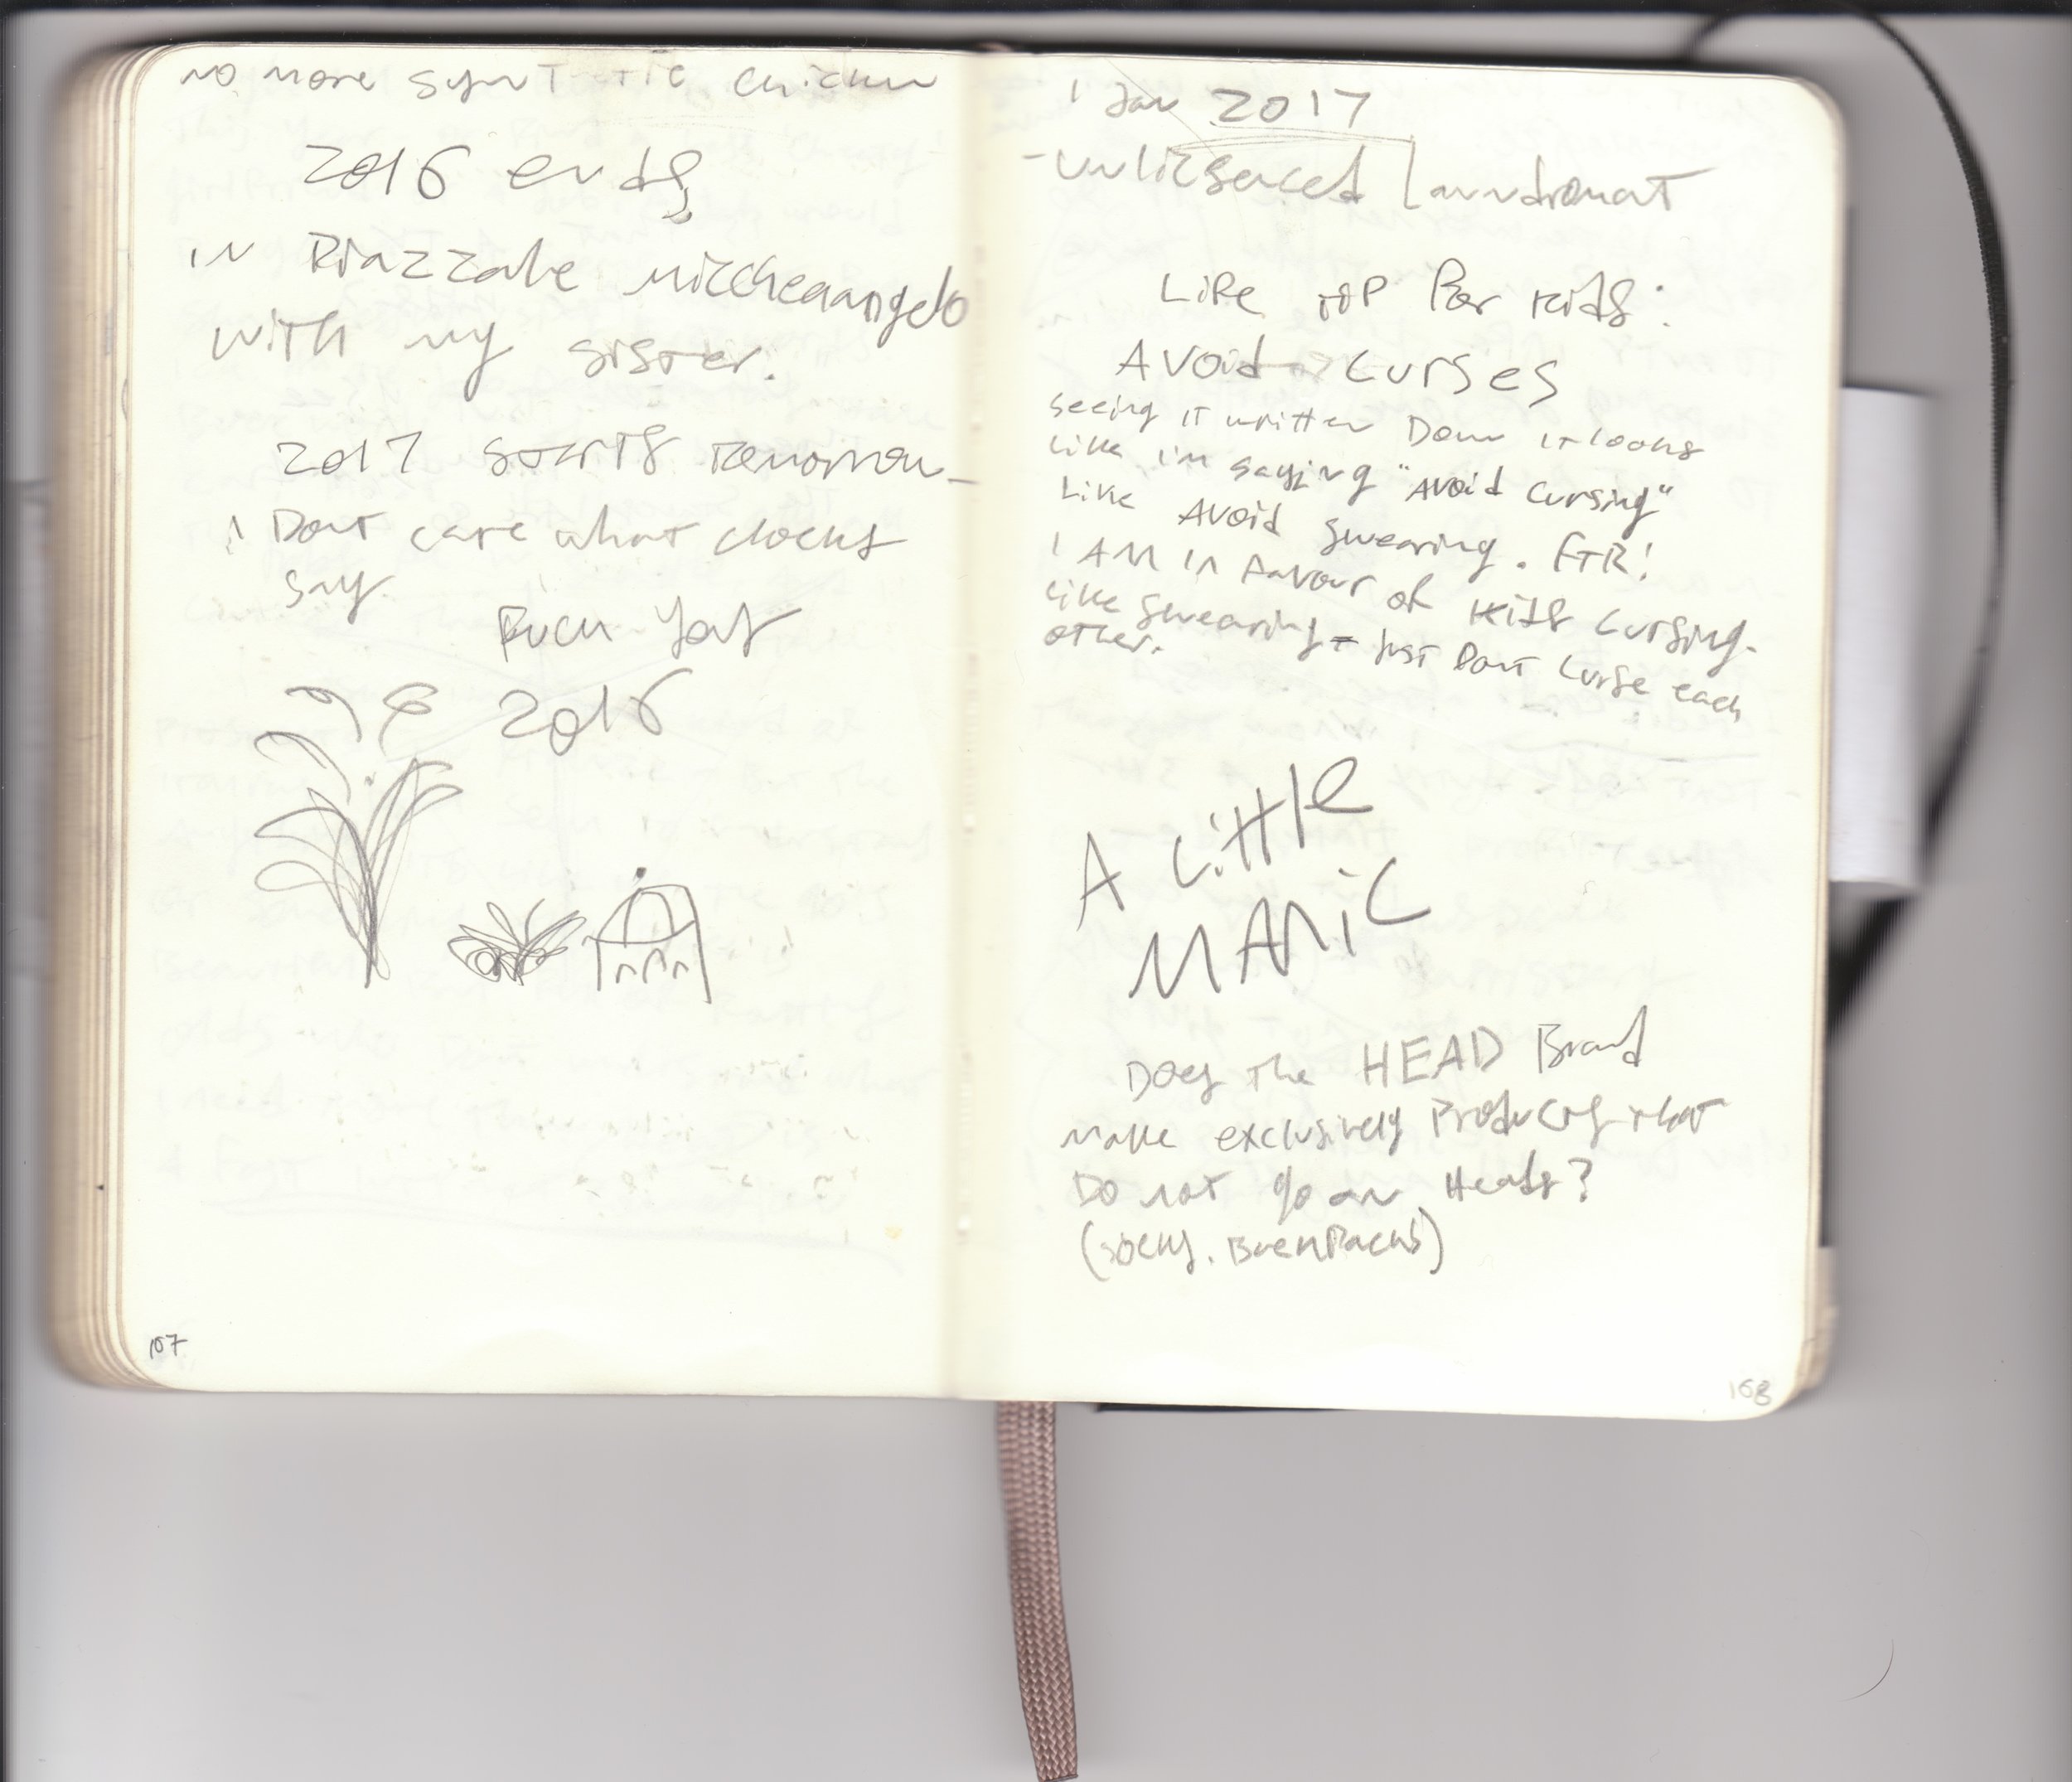 no more synthetic chicken
2016 ends
in Piazzale miccheaangelo
with my sister.
2017 starts tomorrow
I Dont care what clocks
say.
Fuck You
2016
107
1 Jan 2017
- unlicsenced Laundromat
Life tip for kids:
Avoid curses
seeing it written Down it looks
like i'm saying "Avoid cursing"
Like Avoid swearing. FTR!
I AM in favour of kids cursing.
like swearing - just Dont curse each
other.
A Little
MANiC
Does the HEAD Brand
make exclusively Products that
Do not go on Heads?
(socks, BackPacks)
168